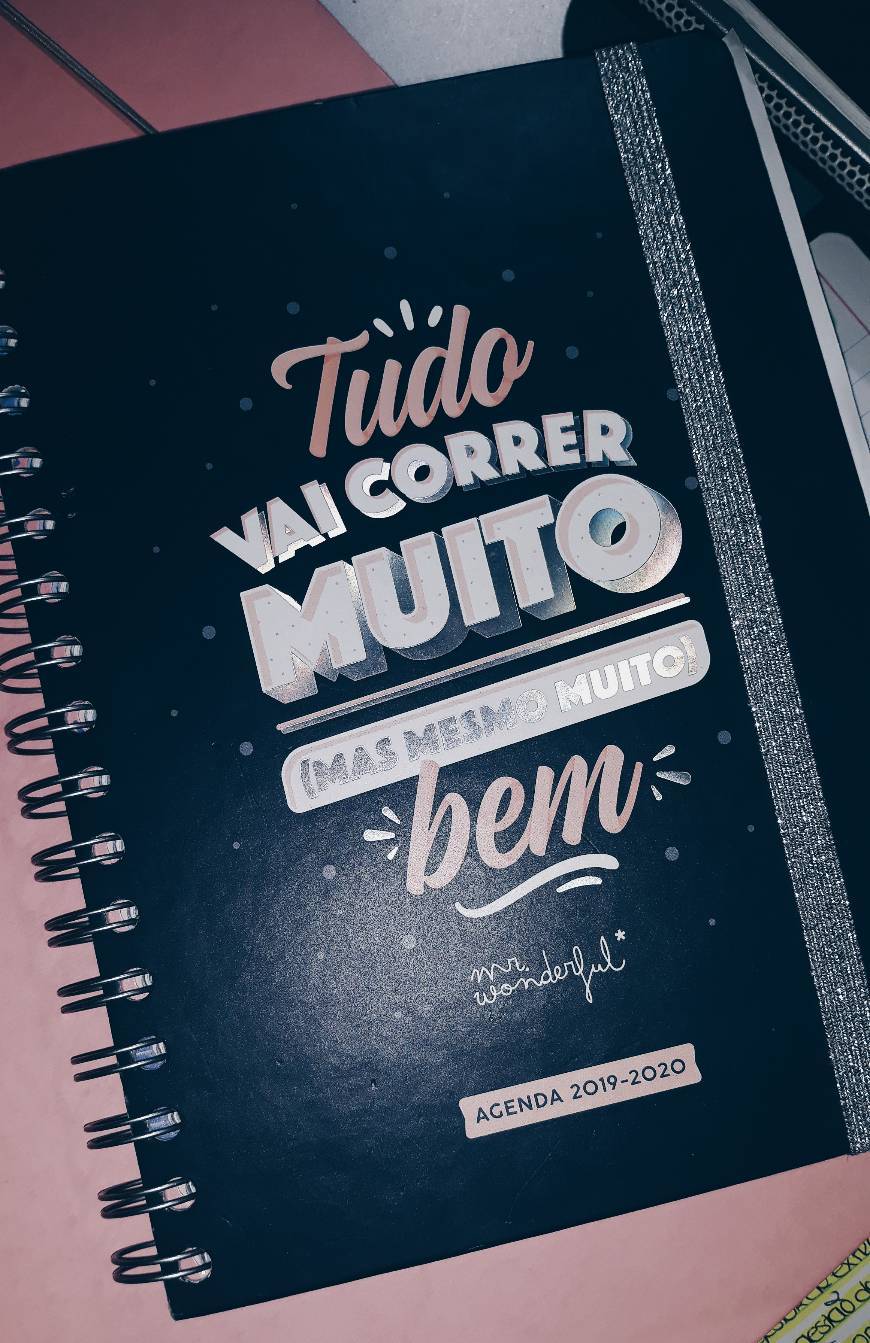 Tudo
VAI CORRER
MUITO
(MAS MESMO MUITO)
bem
mr.
wonderful*
AGENDA 2019-2020